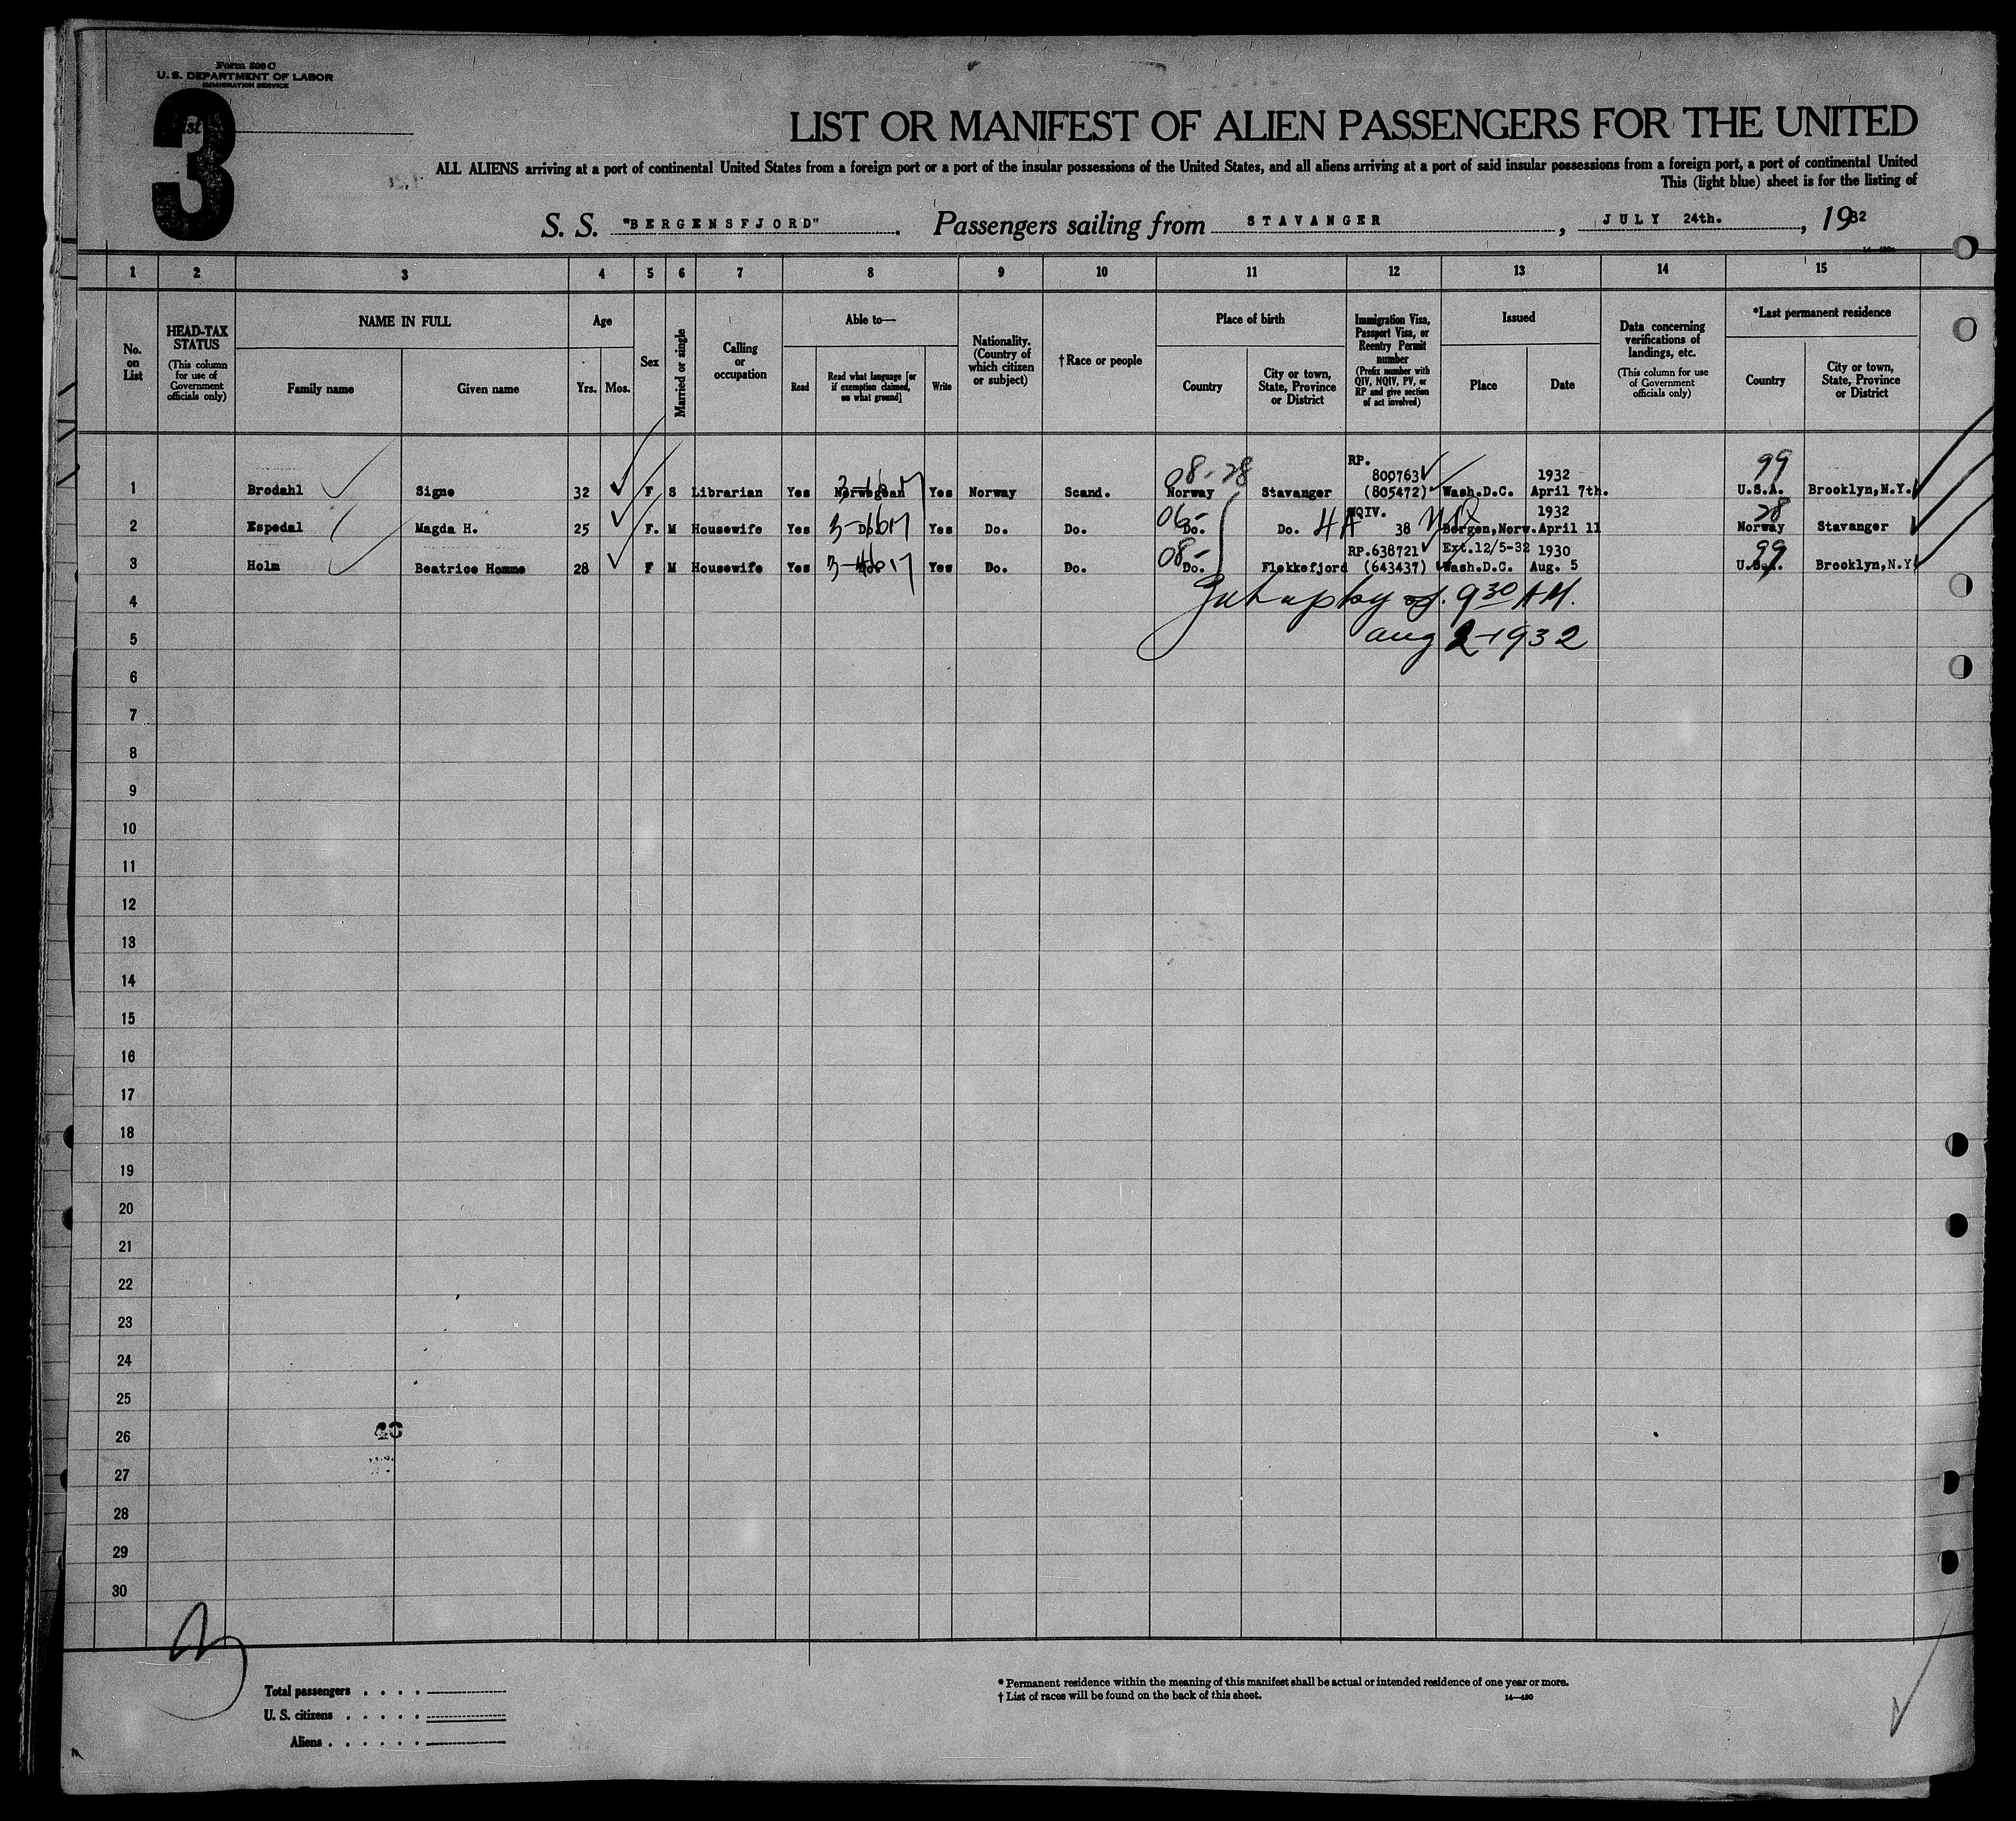 Form 500 C
U. S. DEPARTMENT OF LABOR
IMMIGRATION SERVICE
List
3
LIST OR MANIFEST OF ALIEN PASSENGERS FOR THE UNITED
ALL ALIENS arriving at a port of continental United States from a foreign port or a port of the insular possessions of the United States, and all aliens arriving at a port of said insular possessions from a foreign port, a port of continental United
This (light blue) sheet is for the listing of
S. S. "BERGENSFJORD". Passengers sailing from STAVANGER, JULY 24th., 1932
1 2 3 4 5 6 7 8 9 10 11 12 13 14 15
No. on List
HEAD-TAX STATUS (This column for use of Government officials only)
NAME IN FULL Family name Given name
Age Yrs. Mos.
Sex
Married or single
Calling or occupation
Able to— Read Read what language [or if exemption claimed, on what ground] Write
Nationality. (Country of which citizen or subject)
†Race or people
Place of birth Country City or town, State, Province or District
Immigration Visa, Passport Visa, or Reentry Permit number (Prefix number with QIV, NQIV, PV, or RP and give section of act involved)
Issued Place Date
Data concerning verifications of landings, etc. (This column for use of Government officials only)
*Last permanent residence Country City or town, State, Province or District
08-28 RP. 800763 1932 99
1 Brodahl Signe 32 F S Librarian Yes Norwegian Yes Norway Scand. Norway Stavanger (805472) Wash.D.C. April 7th. U.S.A. Brooklyn,N.Y.
06- NQIV. 1932 28
2 Espedal Magda H. 25 F. M Housewife Yes Do. Yes Do. Do. Do. Do. 4A 38 Bergen,Norw. April 11 Norway Stavanger
08- RP.638721 Ext.12/5-32 1930 99
3 Holm Beatrice Homme 28 F M Housewife Yes Do. Yes Do. Do. Do. Flekkefjord (643437) Wash.D.C. Aug. 5 U.S.A. Brooklyn,N.Y.
4 9 30 AM.
5 Aug 2-1932
6
7
8
9
10
11
12
13
14
15
16
17
18
19
20
21
22
23
24
25
26
27
28
29
30
Total passengers
U. S. citizens
Aliens
* Permanent residence within the meaning of this manifest shall be actual or intended residence of one year or more.
† List of races will be found on the back of this sheet. 14—430